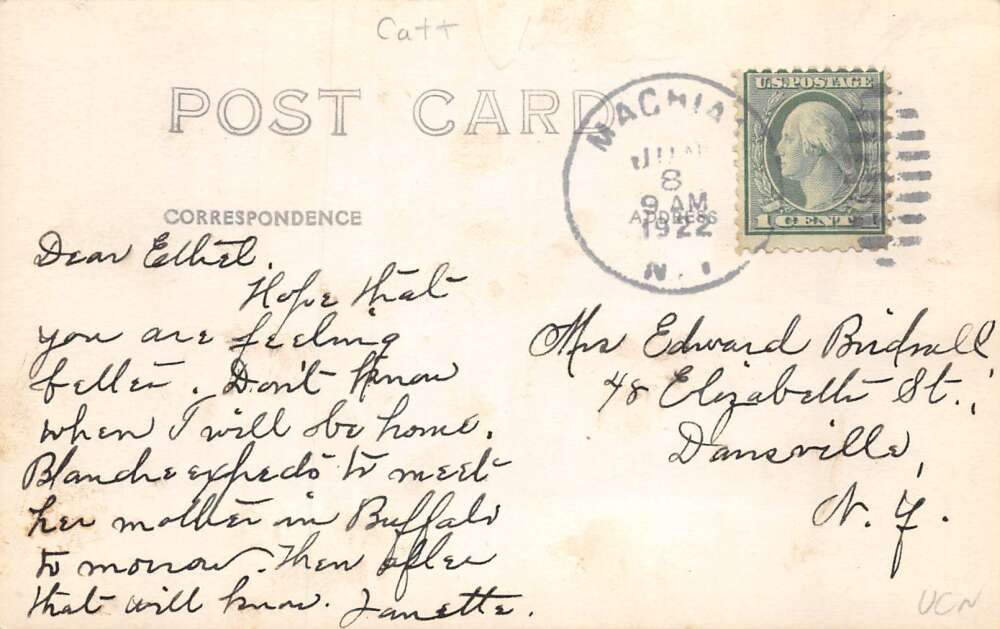 Catt
POST CARD
MACHIA
JUN
8
9 AM
1922
N.Y.
U.S. POSTAGE
1 CENT 1
CORRESPONDENCE
ADDRESS
Dear Ethel.
Hope that
you are feeling
better. Don't know
when I will be home.
Blanche expects to meet
her mother in Buffalo
to morrow. Then after
that will know. Janette.
Mrs Edward Birdsall,
48 Elizabeth St.,
Dansville,
N. Y.
UCN